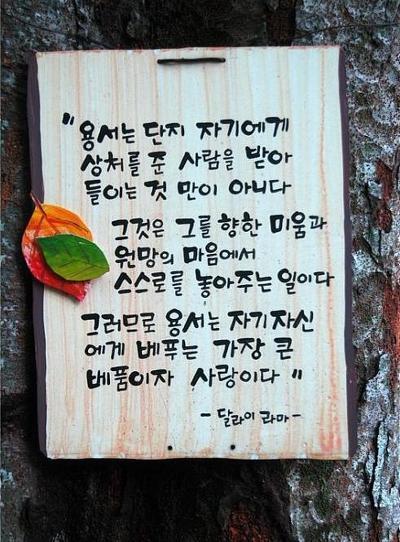 "용서는 단지 자기에게
상처를 준 사람을 받아
들이는 것 만이 아니다
그것은 그를 향한 미움과
원망의 마음에서
스스로를 놓아주는 일이다
그러므로 용서는 자기자신
에게 베푸는 가장 큰
베품이자 사랑이다"
- 달라이 라마 -